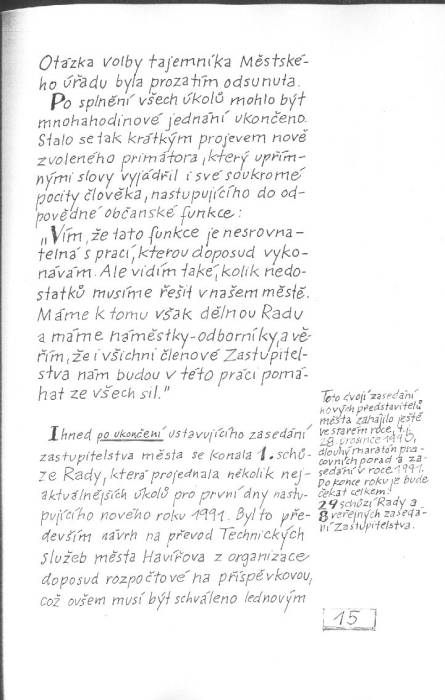 Otázka volby tajemníka Městské-
ho úřadu byla prozatím odsunuta.
Po splnění všech úkolů mohlo být
mnohahodinové jednání ukončeno.
Stalo se tak krátkým projevem nově
zvoleného primátora, který upřím-
nými slovy vyjádřil i své soukromé
pocity člověka, nastupujícího do od-
povědné občanské funkce:
„Vím, že tato funkce je nesrovna-
telná s prací, kterou doposud vyko-
návám. Ale vidím také, kolik nedo-
statků musíme řešit v našem městě.
Máme k tomu však dělnou Radu
a máme náměstky-odborníky, a vě-
řím, že i všichni členové Zastupitel-
stva nám budou v této práci pomá-
hat ze všech sil."
Ihned po ukončení ustavujícího zasedání
zastupitelstva města se konala 1. schů-
ze Rady, která projednala několik nej-
aktuálnějších úkolů pro první dny nastu-
pujícího nového roku 1991. Byl to pře-
devším návrh na převod Technických
služeb města Havířova z organizace
doposud rozpočtové na příspěvkovou,
což ovšem musí být schváleno lednovým
Toto dvojí zasedání
nových představitelů
města zahájilo ještě
ve starém roce, t.j.
28. prosince 1990,
dlouhý maratón pra-
covních porad a za-
sedání v roce 1991.
Do konce roku je bude
čekat celkem:
29 schůzí Rady a
8 veřejných zasedá-
ní Zastupitelstva.
15